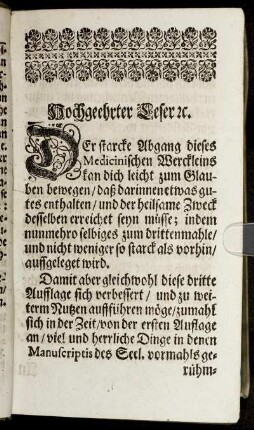 Hochgeehrter Leser ꝛc.
DEr starcke Abgang dieses
Medicinischen Werckleins
kan dich leicht zum Glau-
ben bewegen / daß darinnen etwas gu-
tes enthalten / und der heilsame Zweck
desselben erreichet seyn müsse; indem
nunmehro selbiges zum drittenmahle /
und nicht weniger so starck als vorhin /
auffgeleget wird.
Damit aber gleichwohl diese dritte
Aufflage sich verbessert / und zu wei-
term Nutzen auffführen möge / zumahl
sich in der Zeit / von der ersten Auflage
an / viel und herrliche Dinge in denen
Manuscriptis des Seel. vormahls ge-
rühm-